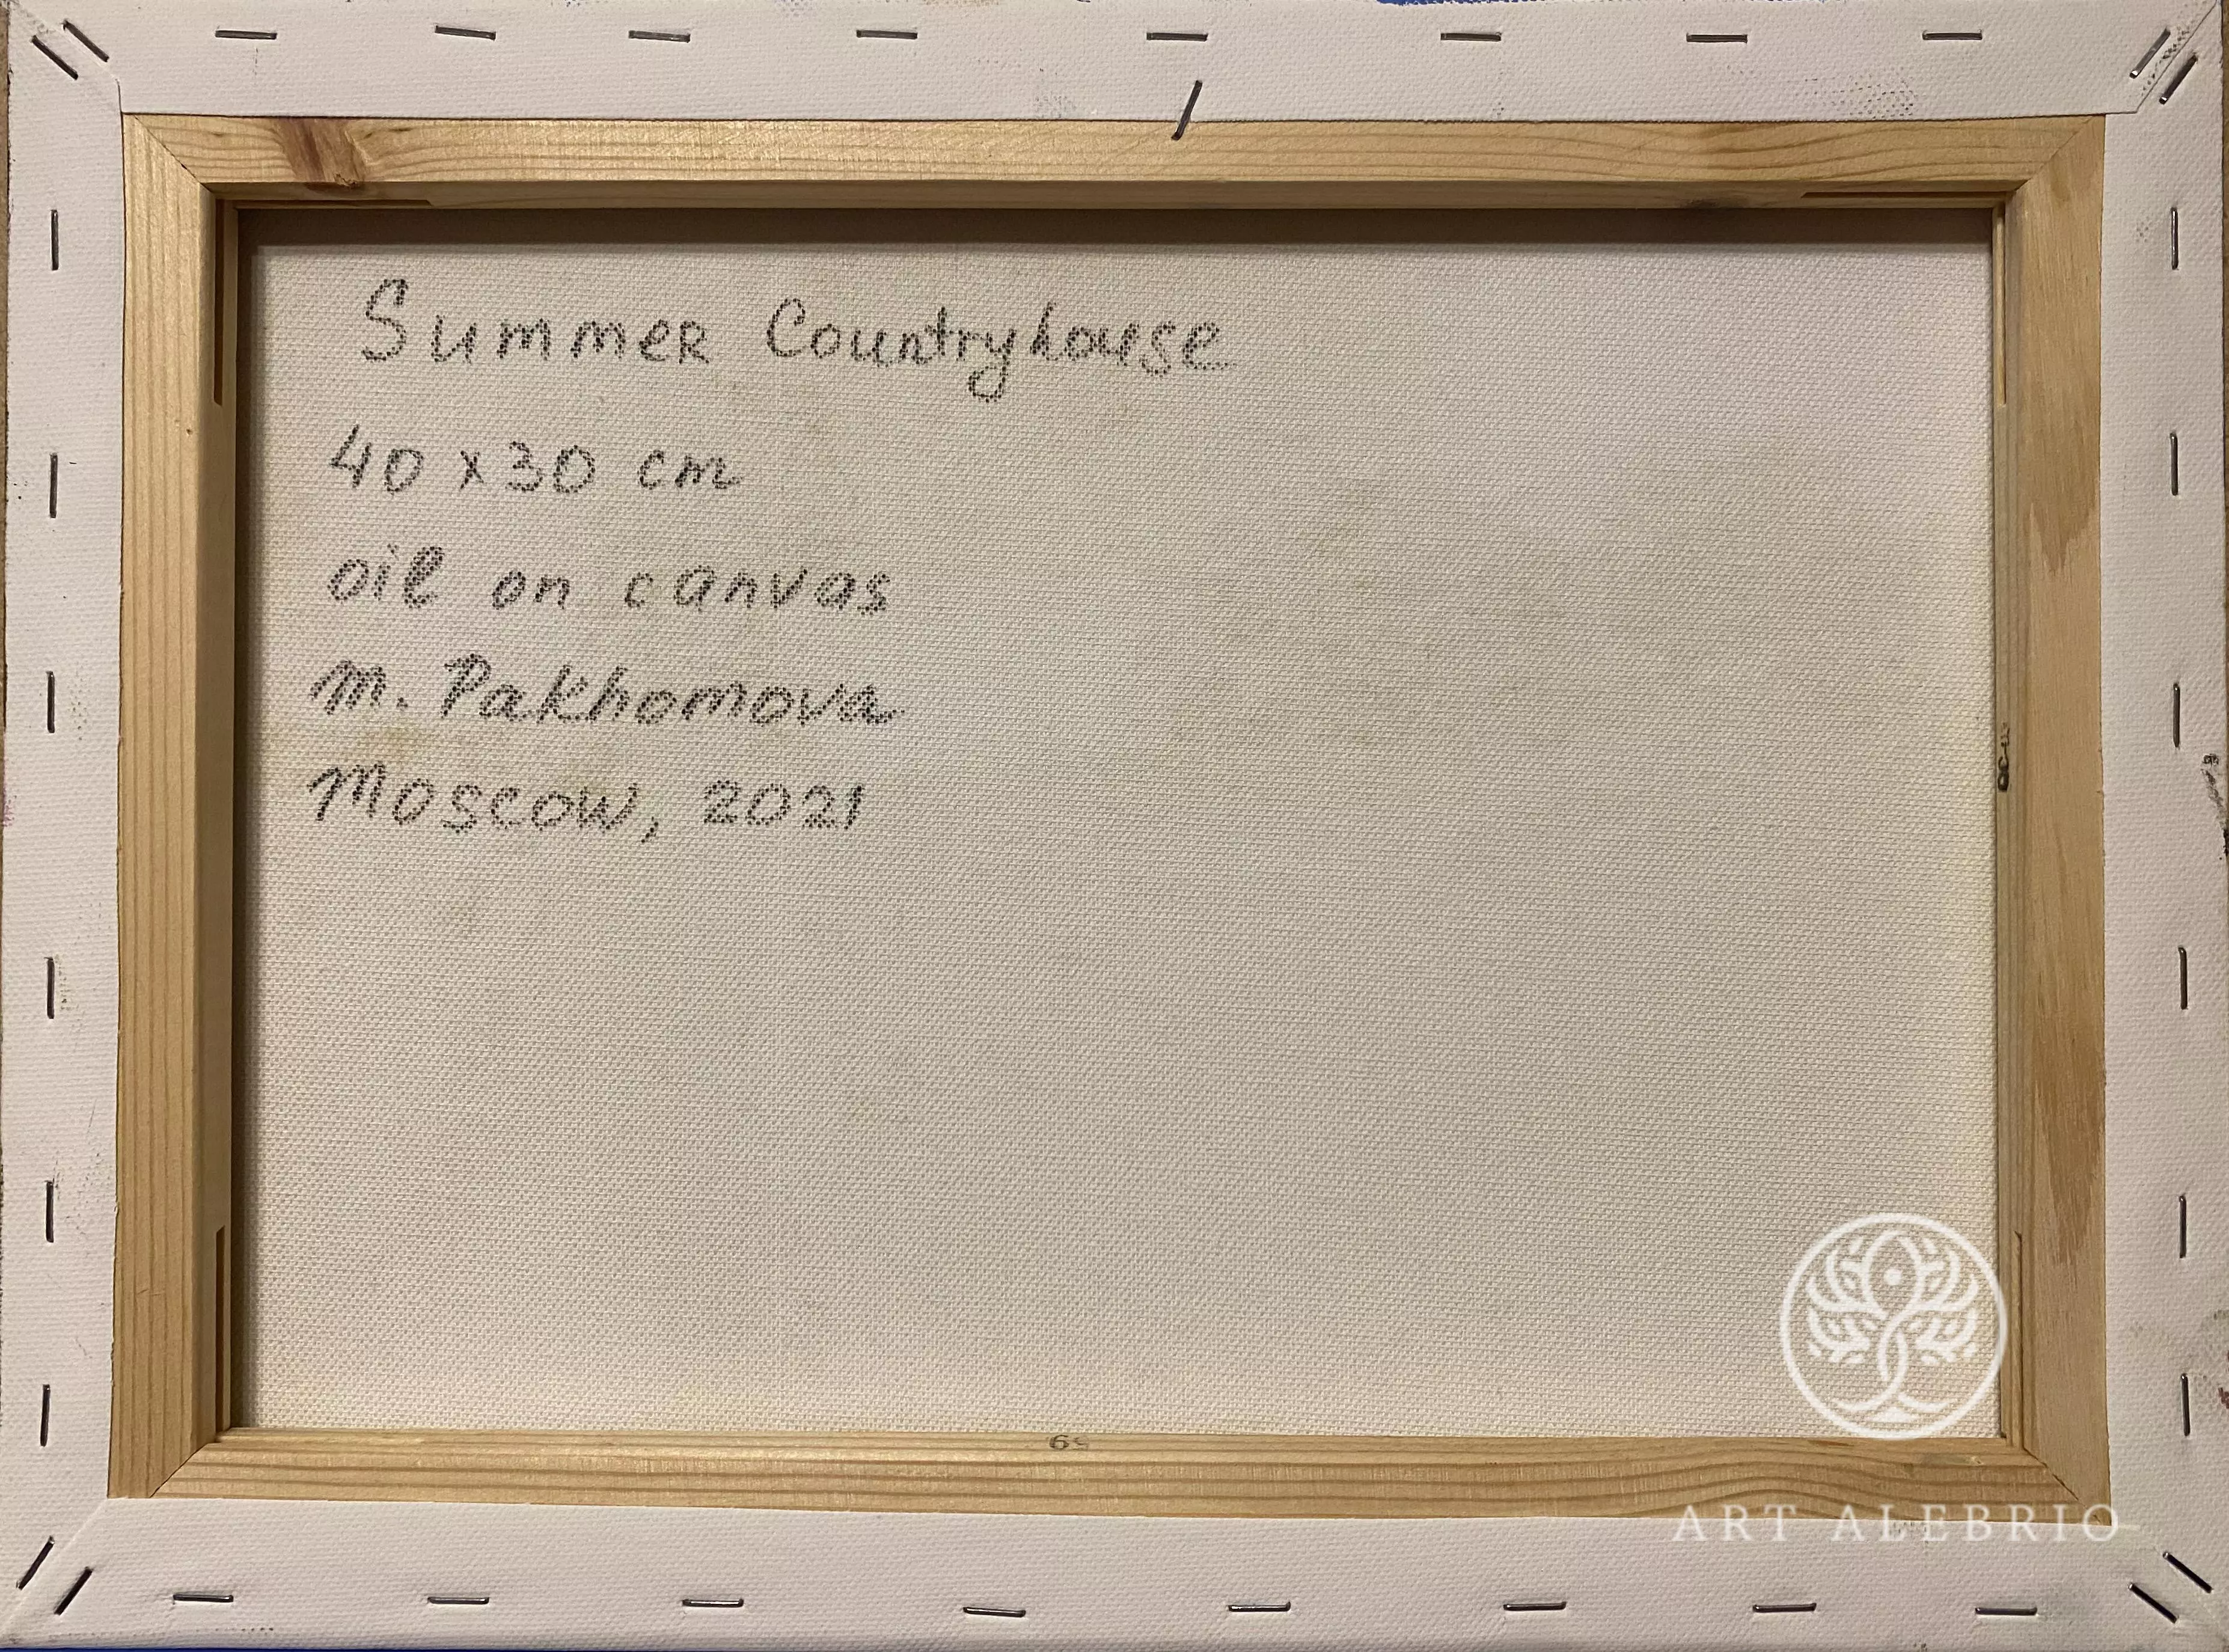 Summer Countryhouse
40 x 30 cm
oil on canvas
M. Pakhomova
Moscow, 2021
ART ALEBRIO